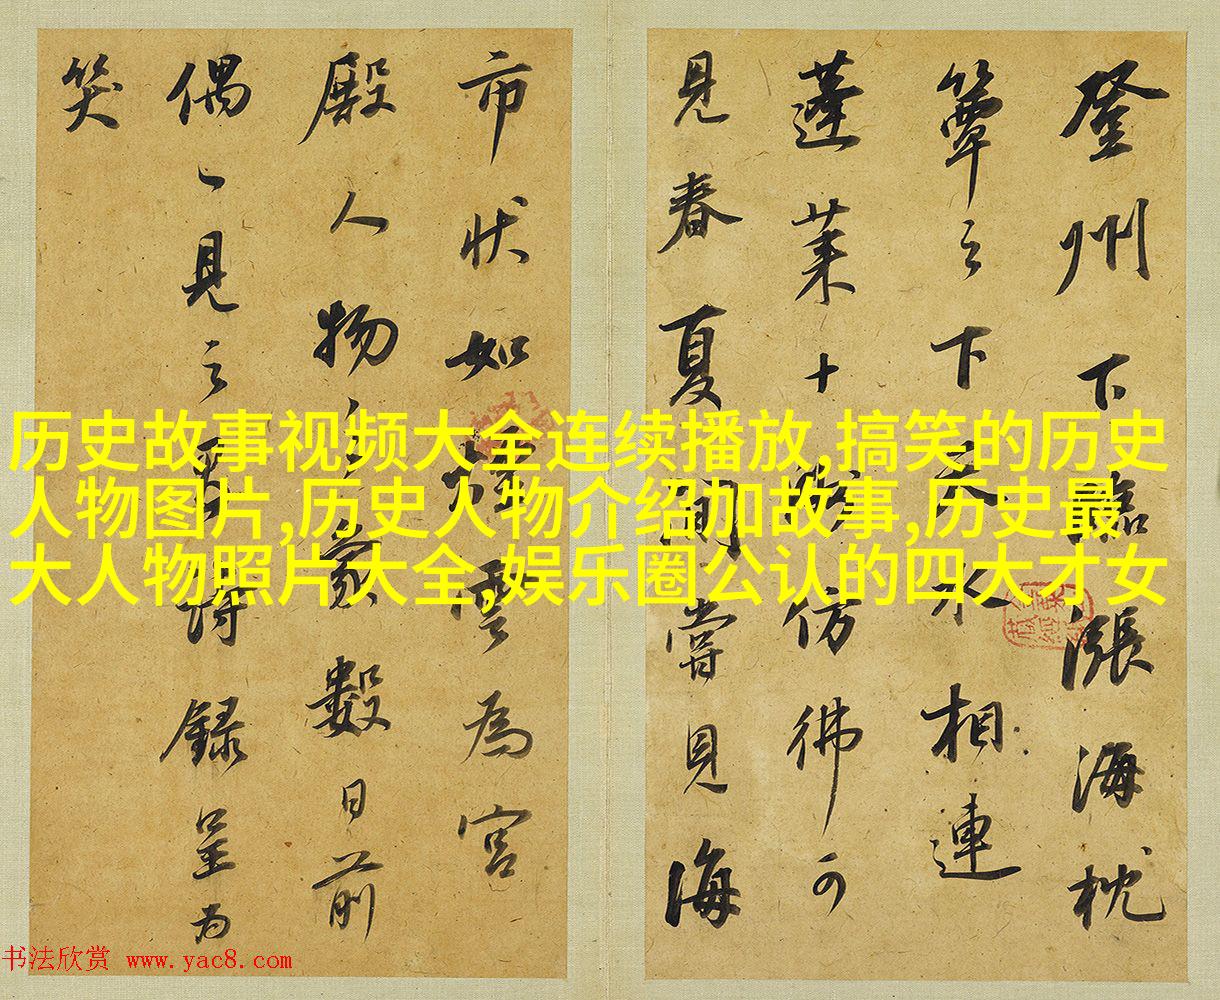 登州下臨漲海枕
簟之下天水相連
蓬莱十仿彿可
見春夏間嘗見海
市状如雲為宮
殿人物之象數日前
偶一見之錄呈为
笑
历史故事视频大全连续播放,搞笑的历史
人物图片,历史人物介绍加故事,历史最
大人物照片大全,娱乐圈公认的四大才女
书法欣赏 www.yac8.com